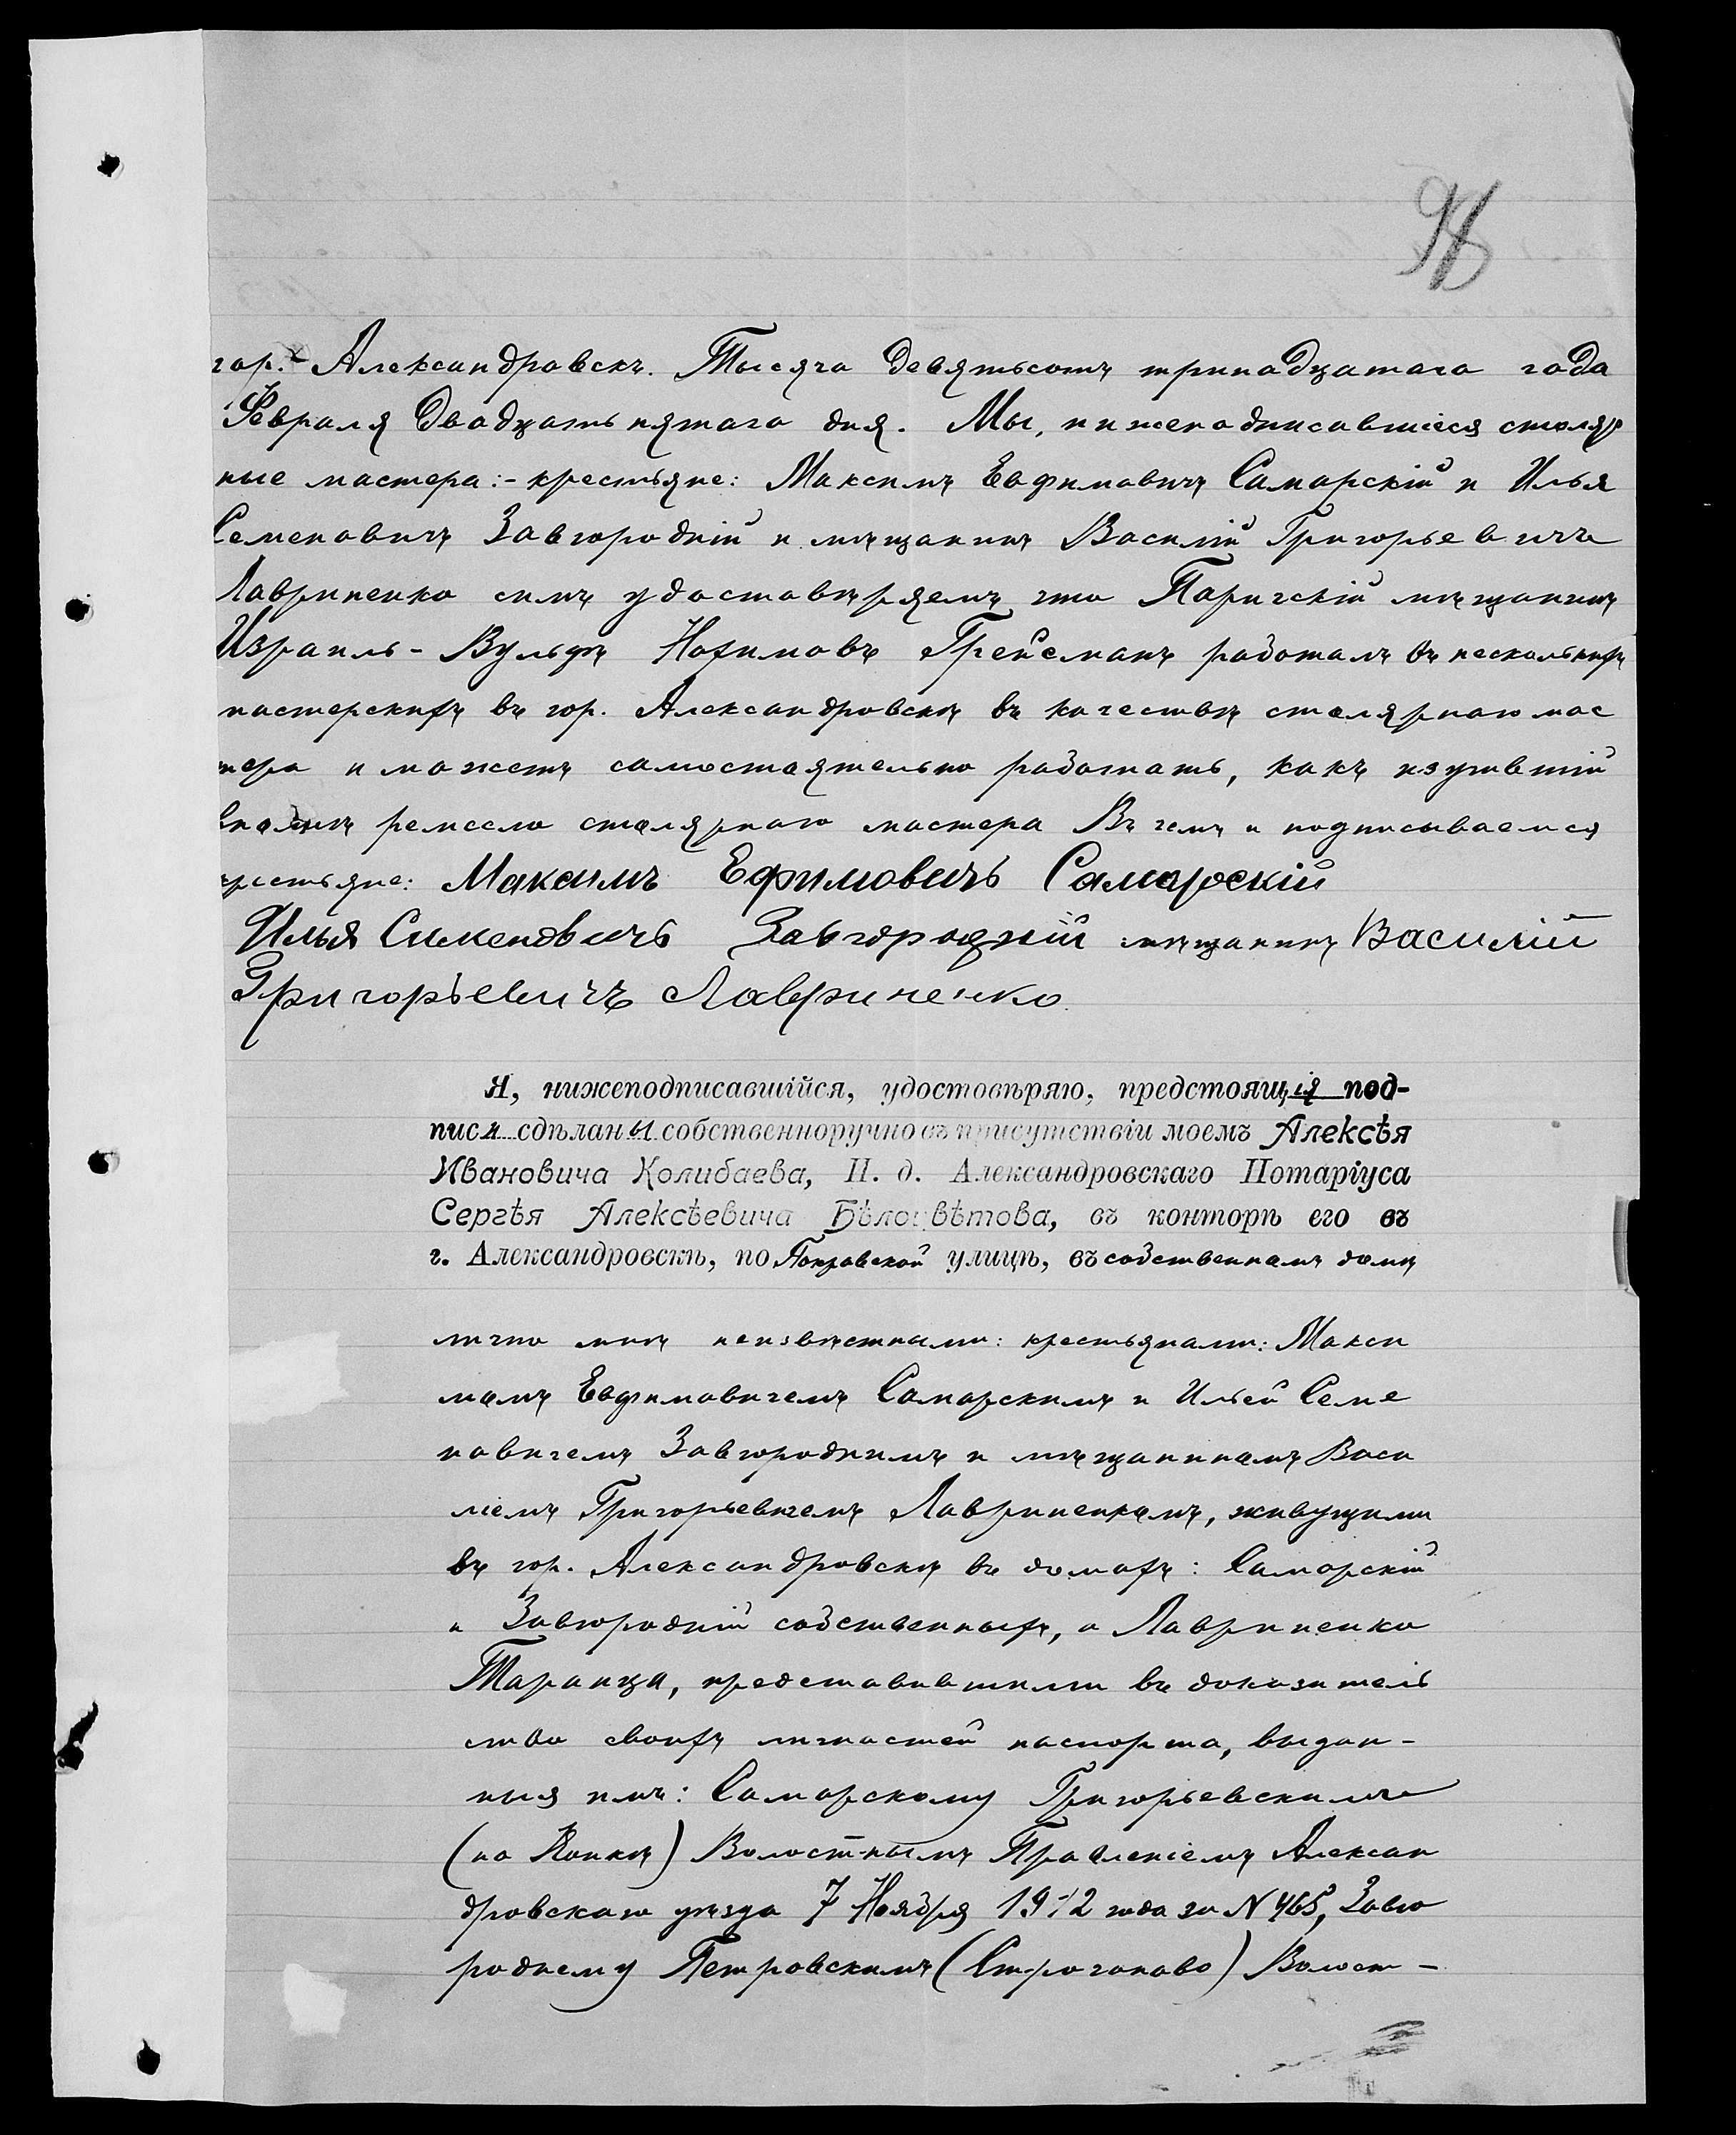 98
гор. Александровскъ. Тысяча девятьсотъ тринадцатаго года
Февраля двадцать пятаго дня. Мы, нижеподписавшiеся столяр
ные мастера:- крестьяне: Максимъ Евфимовичъ Самарскiй и Илья
Семеновичъ Завгороднiй и мѣщанинъ Василiй Григорьевичъ
Лавриненко симъ удостовѣряемъ что Паричскiй мѣщанинъ
Израиль-Вульфъ Нохимовъ Грейсманъ работалъ въ несколькихъ
мастерскихъ въ гор. Александровскѣ въ качествѣ столярнаго мас
тера и можетъ самостоятельно работать, какъ изучившiй
вполнѣ ремесло столярнаго мастера Въ чемъ и подписываемся
крестьяне: Максимъ Ефимовичъ Самарскiй
Илья Сименовичъ Завгороднiй мѣщанинъ Василiй
Григорьевичъ Лавриненко.
Я, нижеподписавшiйся, удостовѣряю, предстоящiя под-
писи сдѣланы собственноручно въ присутствiи моемъ Алексѣя
Ивановича Колибаева, И. д. Александровскаго Нотарiуса
Сергѣя Алексѣевича Бѣлоцвѣтова, въ конторѣ его въ
г. Александровскѣ, по Покровской улицѣ, въ собственномъ домѣ
лично мнѣ неизвѣстными: крестьянами: Макси
момъ Евфимовичемъ Самарскимъ и Ильей Семе
новичемъ Завгороднимъ и мѣщаниномъ Васи
лiемъ Григорьевичемъ Лавриненкомъ, живущими
въ гор. Александровскѣ въ домахъ: Самарскiй
и Завгороднiй собственныхъ, а Лавриненко
Таранца, представившими въ доказатель
ство своихъ личностей паспорта, выдан-
ныя имъ: Самарскому Григорьевскимъ
(на Конкѣ) Волостнымъ Правленiемъ Алексан
дровскаго уѣзда 7 Ноября 1912 года за N 465, Завго
роднему Петровскимъ (Строганово) Волост-